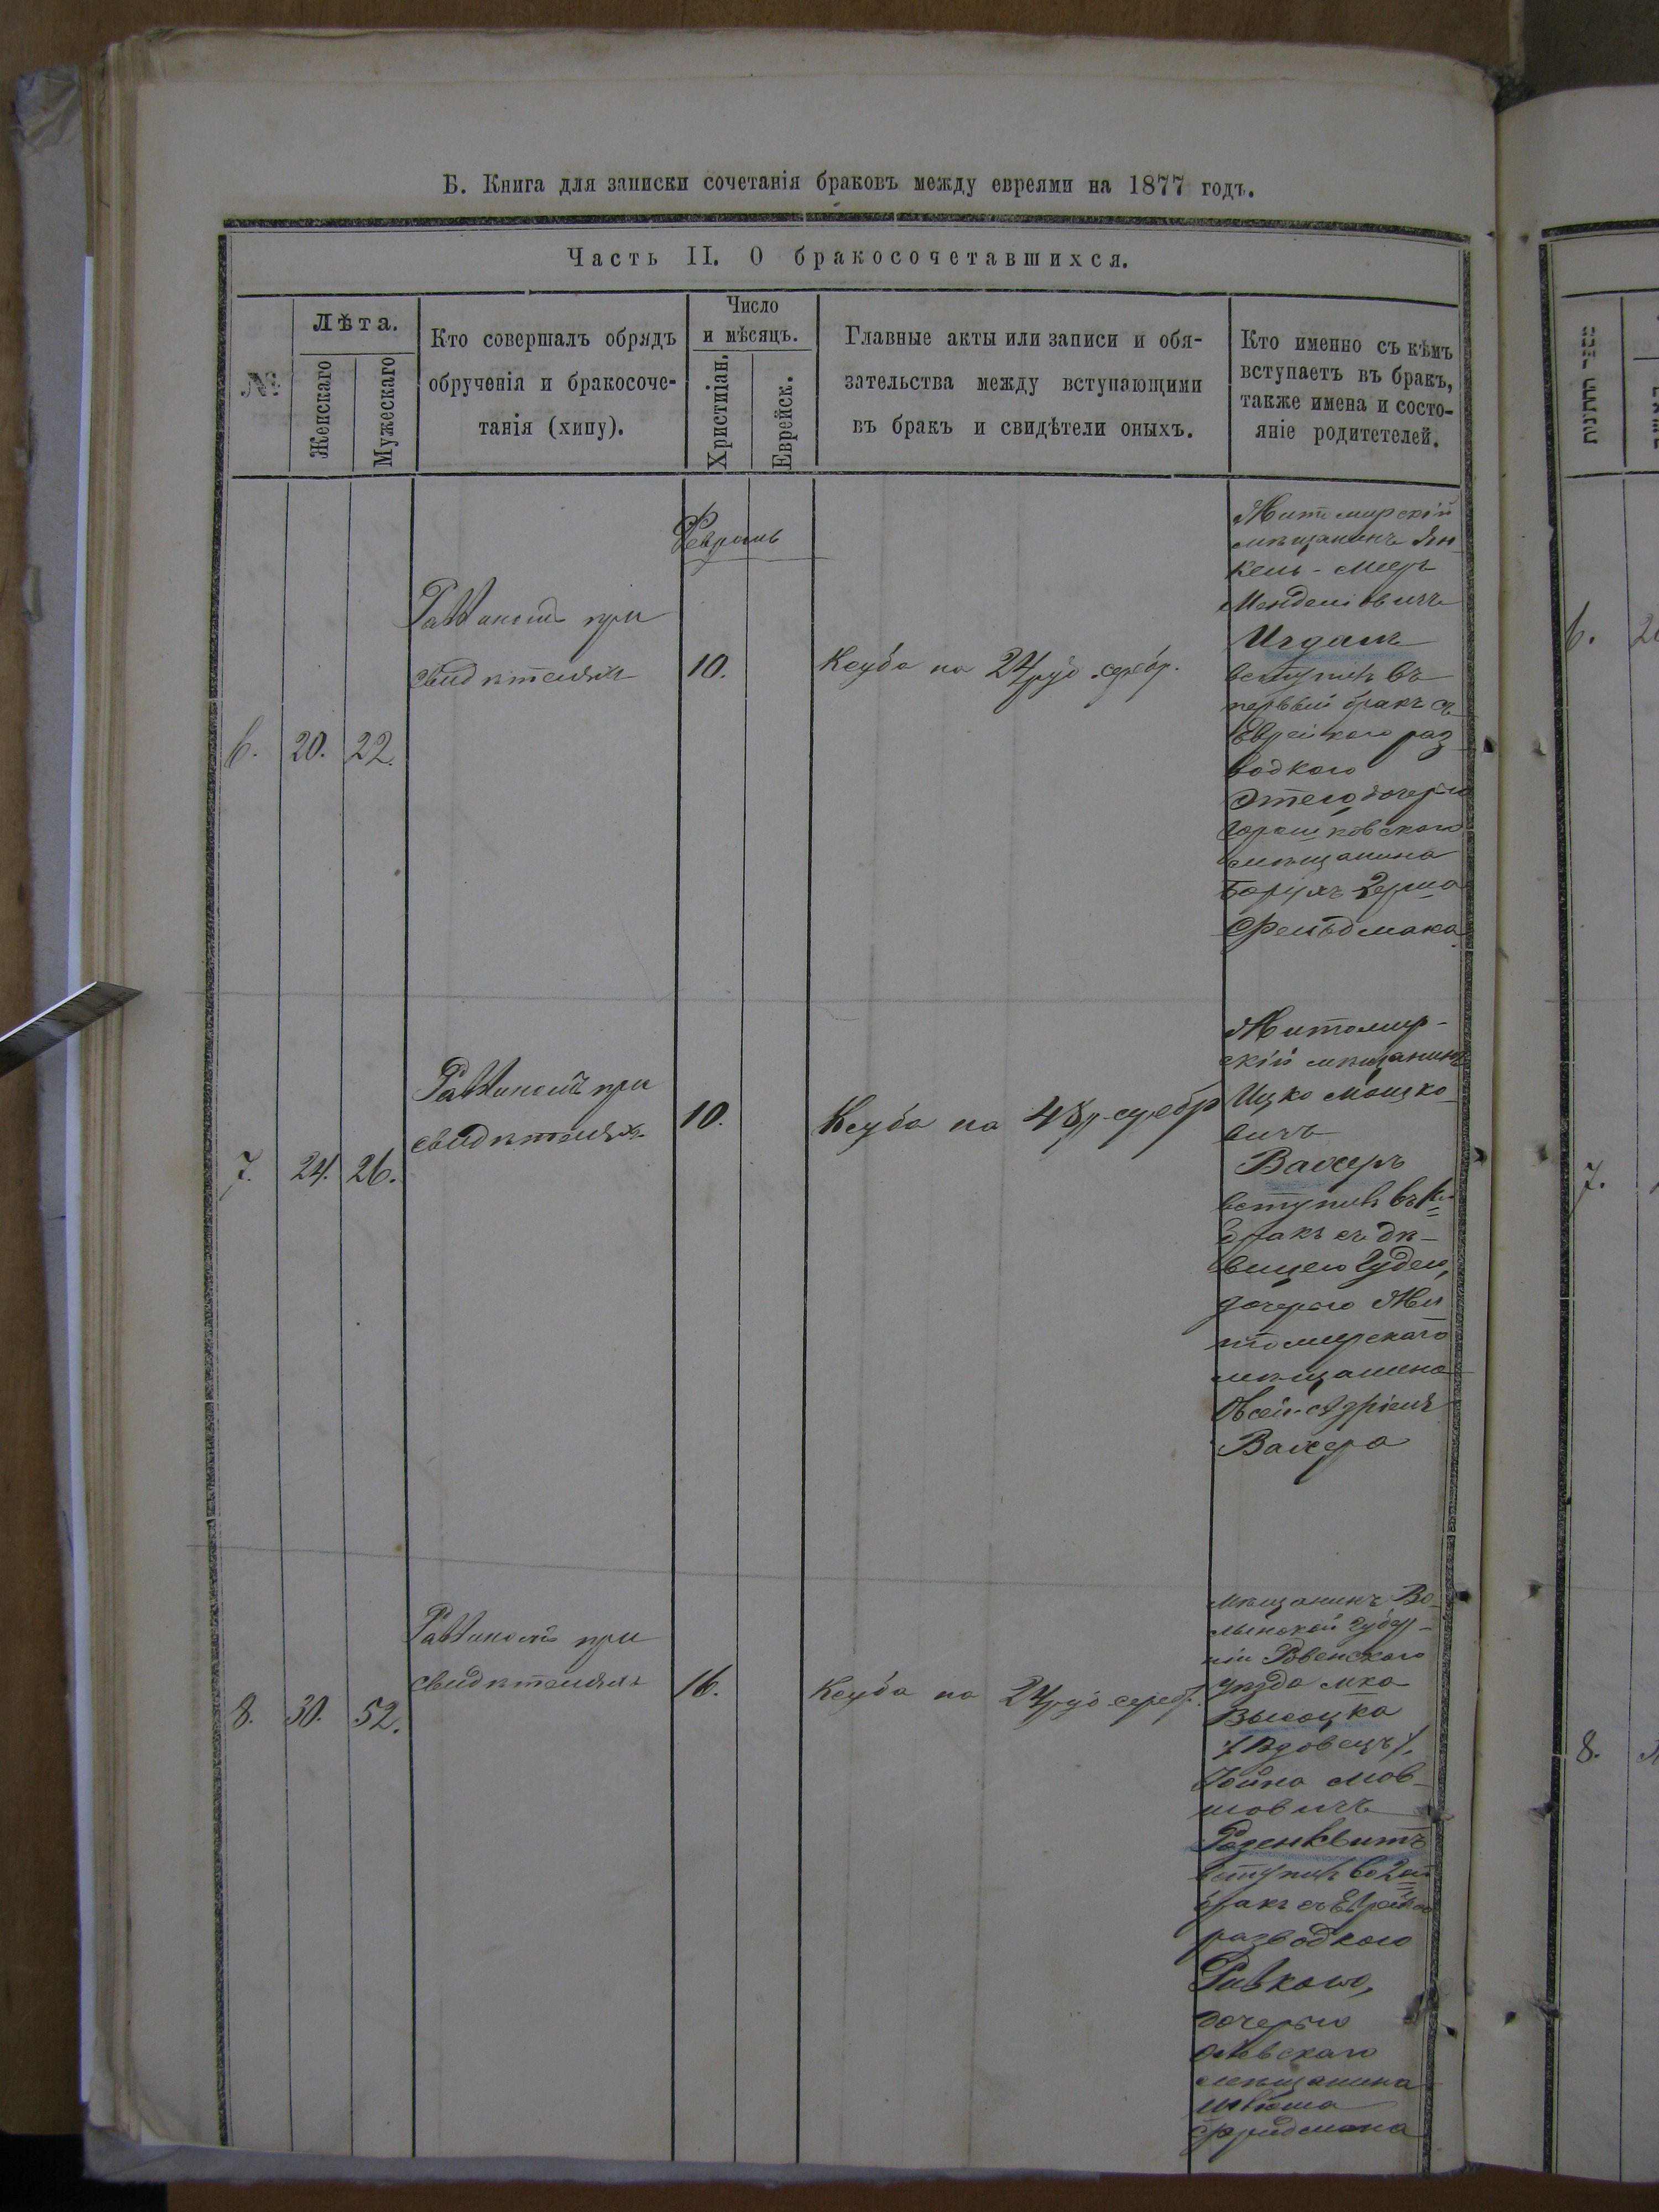 Б. Книга для записки сочетанія браковъ между евреями на 1877 годъ.
Часть II. О бракосочетавшихся.
№
Лѣта.
Женскаго
Мужескаго
Кто совершалъ обрядъ
обрученія и бракосоче-
танія (хипу).
Число
и мѣсяцъ.
Христіан.
Еврейск.
Главные акты или записи и обя-
зательства между вступающими
въ бракъ и свидѣтели оныхъ.
Кто именно съ кѣмъ
вступаетъ въ бракъ,
также имена и состо-
яніе родитетелей.
Февраль
6.
20.
22.
Раввиномъ при
свидѣтеляхъ
10.
Ксуба на 24 руб. серебр.
Житомирскій
мѣщанинъ Ян-
кель-Мееръ
Менделіовичъ
вступилъ въ
первый бракъ съ
Еврейкою раз-
водкою
дочерью
Горошковскаго
мѣщанина
Борухъ Герша
Фельдмана
7.
24.
26.
Раввиномъ при
свидѣтеляхъ
10.
Ксуба на 48 р. серебр
Житомир-
скій мѣщанинъ
Ицко Мошко-
вичъ
Вахеръ
вступилъ въ 1й
бракъ съ дѣ-
вицею Гудею,
дочерью Жи
томирскаго
мѣщанина
Овсей-Азріеля
Вахера
8.
30.
52.
Раввиномъ при
свидѣтеляхъ
16.
Ксуба на 24 руб серебр.
мѣщанинъ Во-
лынской Губер-
ніи Ровенскаго
уѣзда мка
Высоцка
/Вдовецъ/.
Іойна Мов-
шовичъ
Розенквитъ
вступилъ во 2ой
бракъ съ Еврейкою
разводкою
Ривкою,
дочерью
Олевскаго
мѣщанина
Фридмана
6.
7.
8.